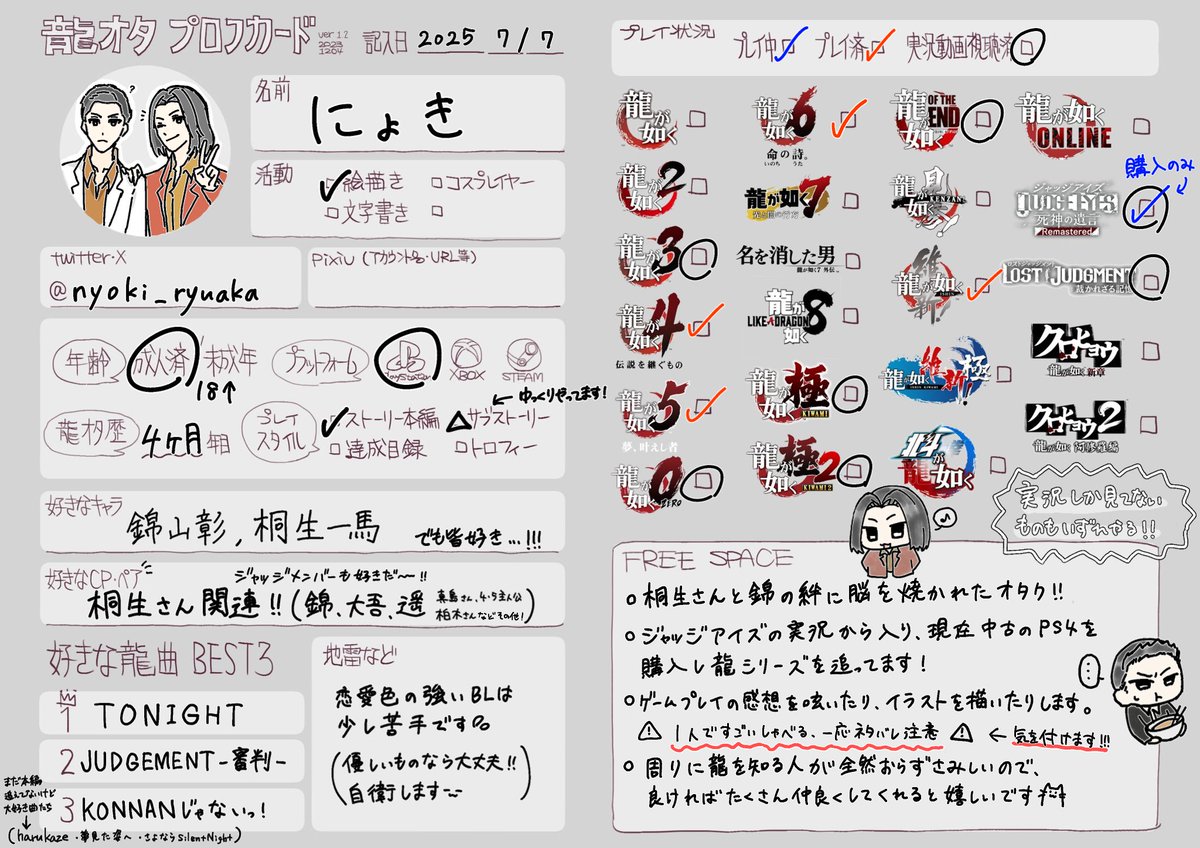 龍オタ プロフカード
ver 1.2
記入日 2025 7/7
名前
にょき
活動
絵描き コスプレイヤー
文字書き
twitter・X
@nyoki_ryuaka
pixiv (アカウント名・URL等)
年齢 成人済 / 未成年
18↑
プラットフォーム
PlayStation XBOX STEAM
龍オタ歴 4ヶ月 年目
プレイスタイル
ストーリー本編 サブストーリー
達成目録 トロフィー
← ゆっくりやってます!
好きなキャラ
錦山彰, 桐生一馬 でも皆好き…!!!
好きなCP・ペア
ジャッジメンバーも好きだ〜〜!!
桐生さん関連!! (錦、大吾、遥 真島さん、4・5主人公 柏木さんなどその他!)
好きな龍曲 BEST3
1 TONIGHT
2 JUDGEMENT -審判-
3 KONNANじゃないっ!
まだ本編
追えてないけど
大好き曲たち
↓
(harukaze ・夢見た姿へ ・さよならSilentNight)
地雷など
恋愛色の強いBLは
少し苦手です
(優しいものなら大丈夫!!
自衛します)
プレイ状況
プレイ中 プレイ済 実況動画視聴済
龍が如く
龍が如く2
龍が如く3
龍が如く4
伝説を継ぐもの
龍が如く5
夢、叶えし者
龍が如く0 ZERO
龍が如く6
命の詩。
いのち うた
龍が如く7
光と闇の行方
名を消した男
龍が如く7 外伝
龍が如く8
LIKE A DRAGON
龍が如く 極 KIWAMI
龍が如く 極2 KIWAMI2
龍が如く OF THE END
龍が如く 見参! KENZAN!
龍が如く 維新!
龍が如く 維新! 極
北斗が如く
龍が如く ONLINE
購入のみ
ジャッジアイズ
JUDGE EYES
死神の遺言
Remastered
ロストジャッジメント
LOST JUDGMENT
裁かれざる記憶
クロヒョウ
龍が如く 新章
クロヒョウ2
龍が如く 阿修羅編
実況しか見てない
ものもいずれやる!!
FREE SPACE
○ 桐生さんと錦の絆に脳を焼かれたオタク!!
○ ジャッジアイズの実況から入り、現在中古のPS4を
購入し龍シリーズを追ってます!
○ ゲームプレイの感想を呟いたり、イラストを描いたりします。
⚠ 1人ですごいしゃべる、一応ネタバレ注意 ⚠ ← 気を付けます!!!
○ 周りに龍を知る人が全然おらずさみしいので、
良ければたくさん仲良くしてくれると嬉しいです